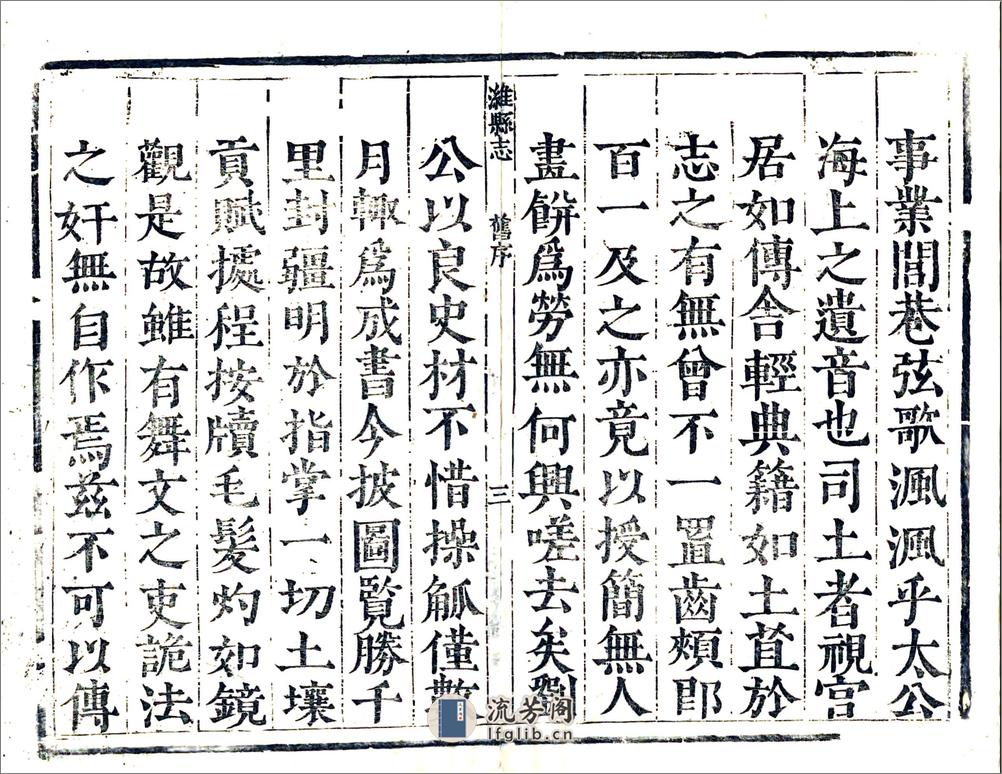 事業閭巷弦歌渢渢乎太公
海上之遺音也司土者視官
居如傳舍輕典籍如土苴於
志之有無曾不一置齒頰即
百一及之亦竟以授簡無人
畫餅為勞無何興嗟去矣劉
濰縣志 舊序 三
公以良史材不惜操觚僅數
月輙為成書今披圖覽勝千
里封疆明於指掌一切土壤
貢賦據程按牘毛髮灼如鏡
觀是故雖有舞文之吏詭法
之奸無自作焉茲不可以傳
流芳阁
lfglib.cn